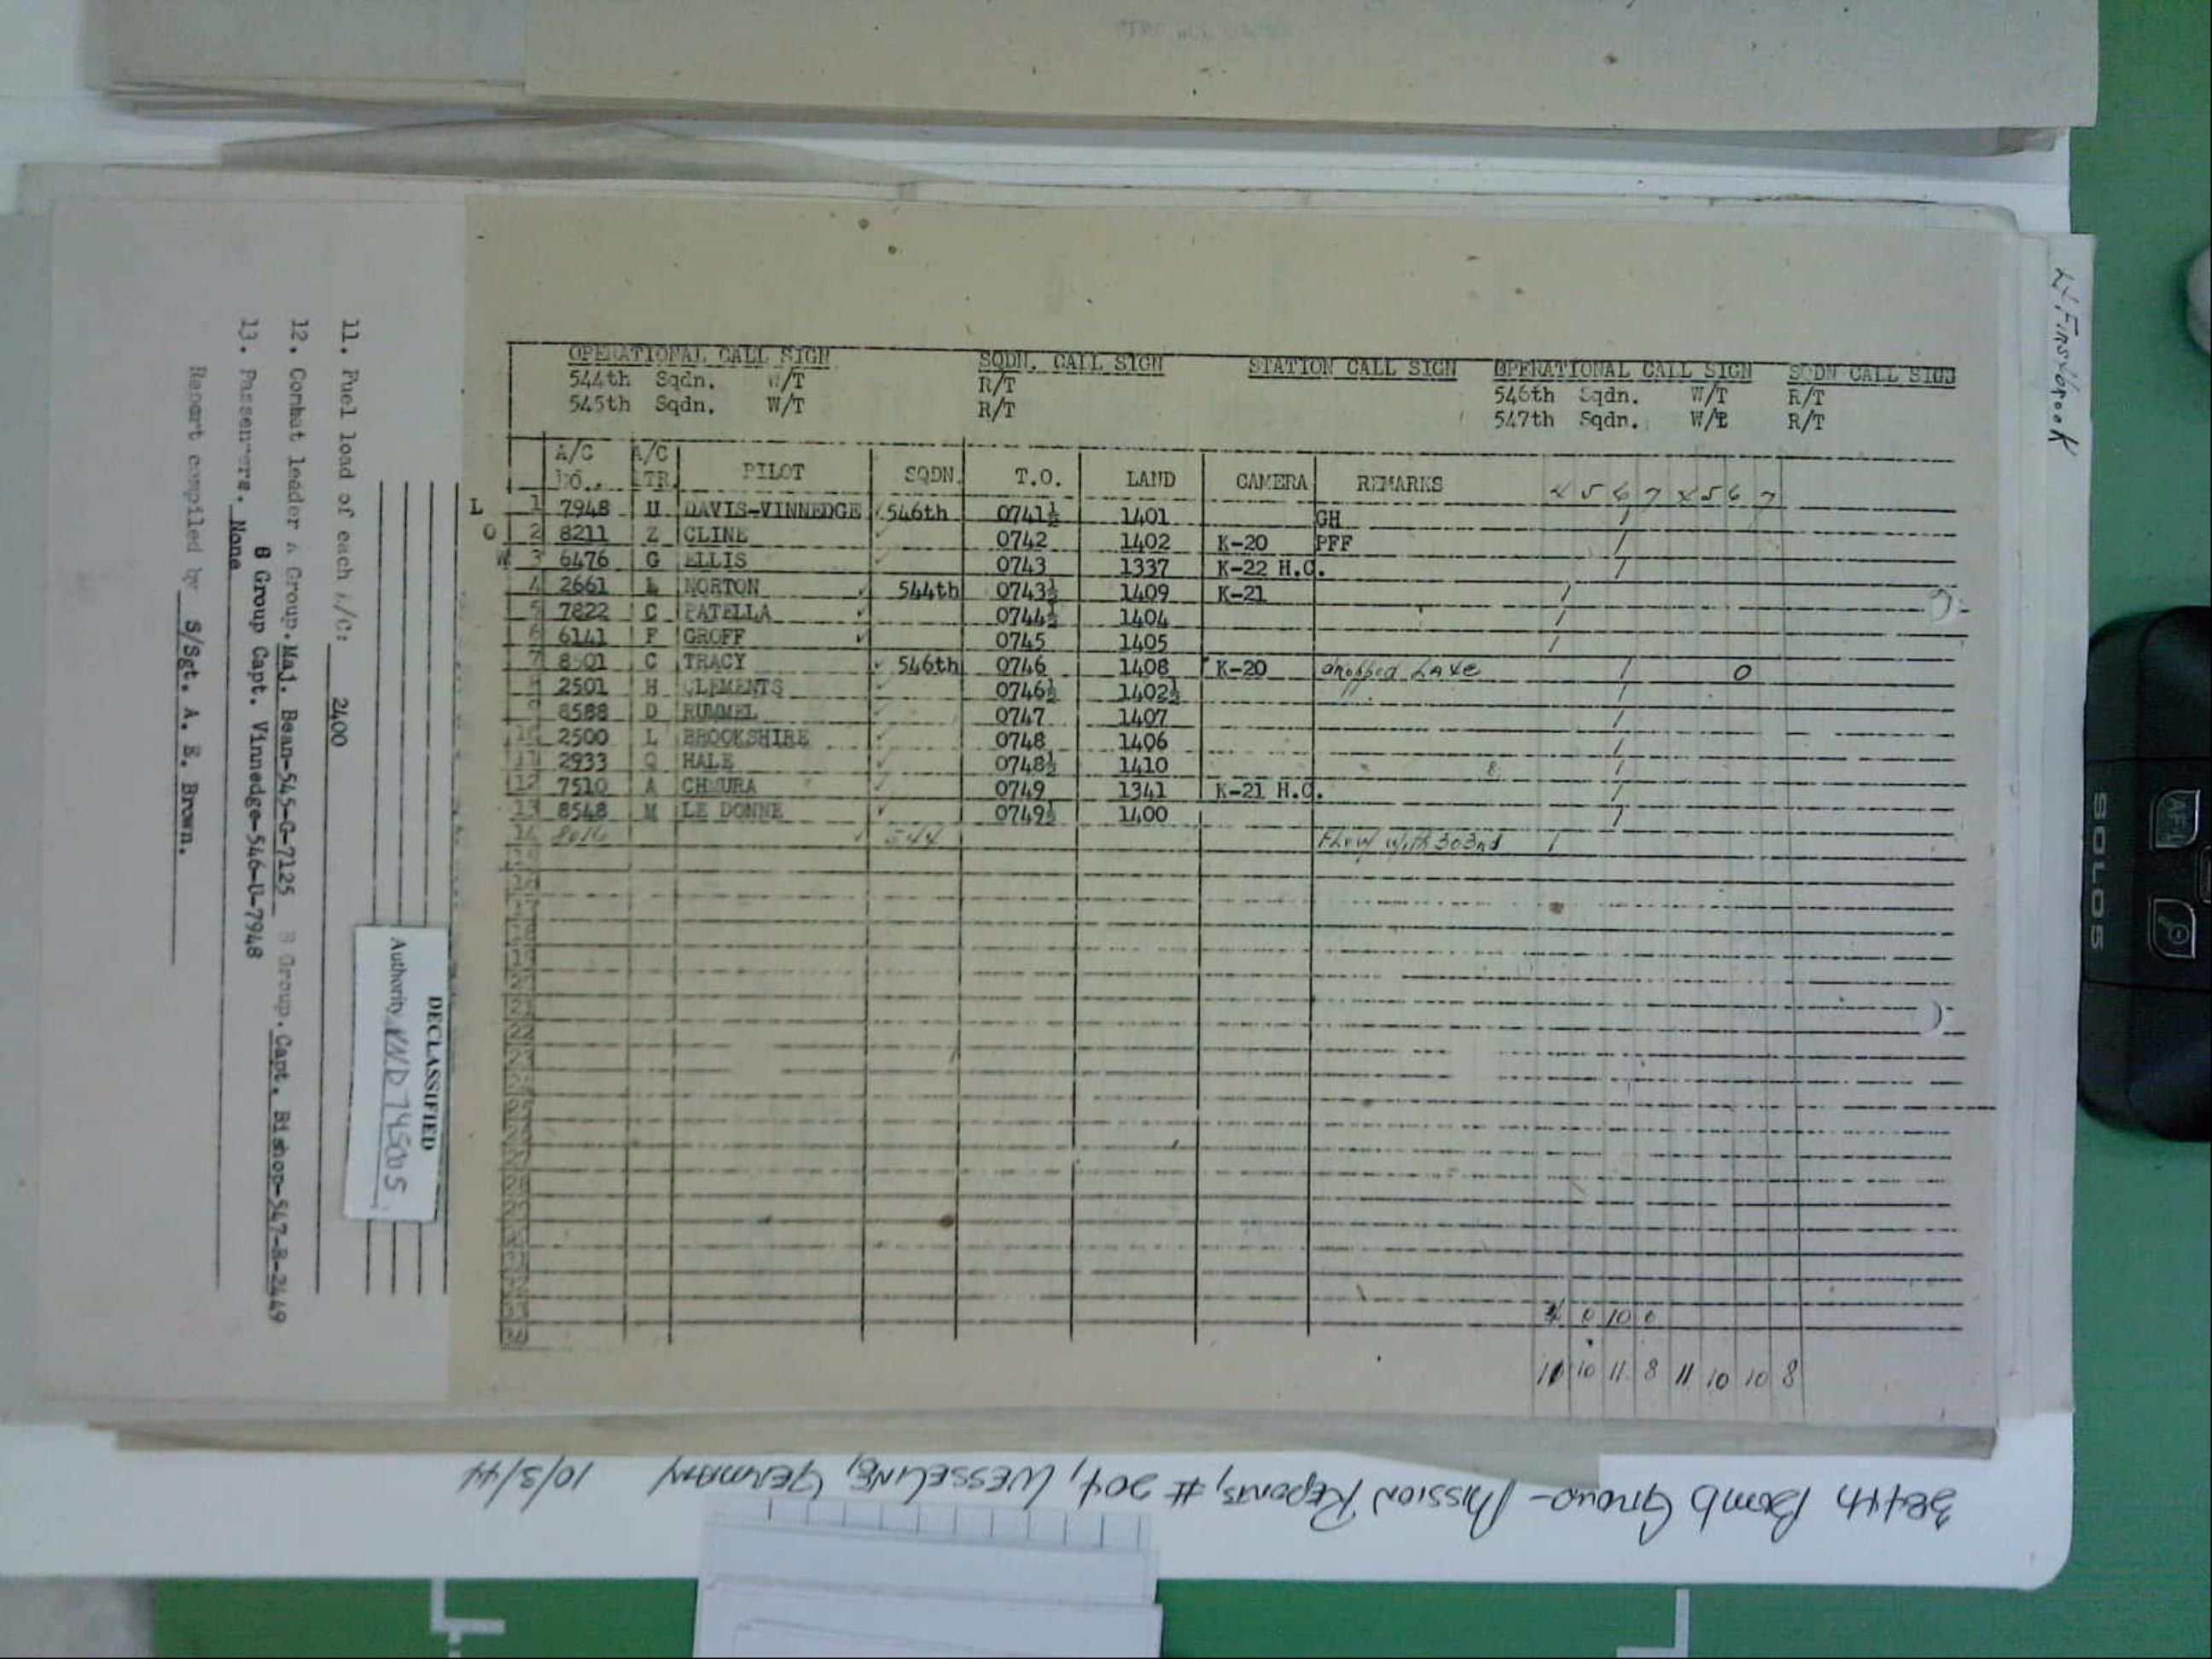 OPERATIONAL CALL SIGN SQDN. CALL SIGN STATION CALL SIGN OPERATIONAL CALL SIGN SQDN CALL SIGN
544th Sqdn. W/T R/T 546th Sqdn. W/T R/T
545th Sqdn. W/T R/T 547th Sqdn. W/T R/T
A/C NO. A/C LTR. PILOT SQDN. T.O. LAND CAMERA REMARKS 4 5 6 7 4 5 6 7
L 1 7948 U DAVIS-VINNEDGE 546th 0741½ 1401 GH /
O 2 8211 Z CLINE 0742 1402 K-20 PFF /
W 3 6476 G ELLIS 0743 1337 K-22 H.O. /
4 2661 L NORTON 544th 0743½ 1409 K-21 /
5 7822 C PATELLA 0744½ 1404 /
6 6141 F GROFF 0745 1405 /
7 8501 C TRACY 546th 0746 1408 K-20 dropped Late / 0
8 2501 H CLEMENTS 0746½ 1402½ /
9 8588 D RUMMEL 0747 1407 /
10 2500 L BROOKSHIRE 0748 1406 /
11 2933 Q HALE 0748½ 1410 /
12 7510 A CHMURA 0749 1341 K-21 H.O. /
13 8548 M LE DONNE 0749½ 1400 /
14 8016 544 Flew with 303rd /
4 0 10 0
11 10 11 8 11 10 10 8
11. Fuel load of each A/C: 2400
12. Combat leader A Group. Maj. Bean-545-G-7125 B Group. Capt. Bishop-547-R-2449
8 Group Capt. Vinnedge-546-U-7948
13. Passengers. None
Report compiled by S/Sgt. A. E. Brown.
DECLASSIFIED
Authority NND 745005
384th Bomb Group - Mission Reports, # 204, Wesseling, Germany 10/3/44
SOLO5